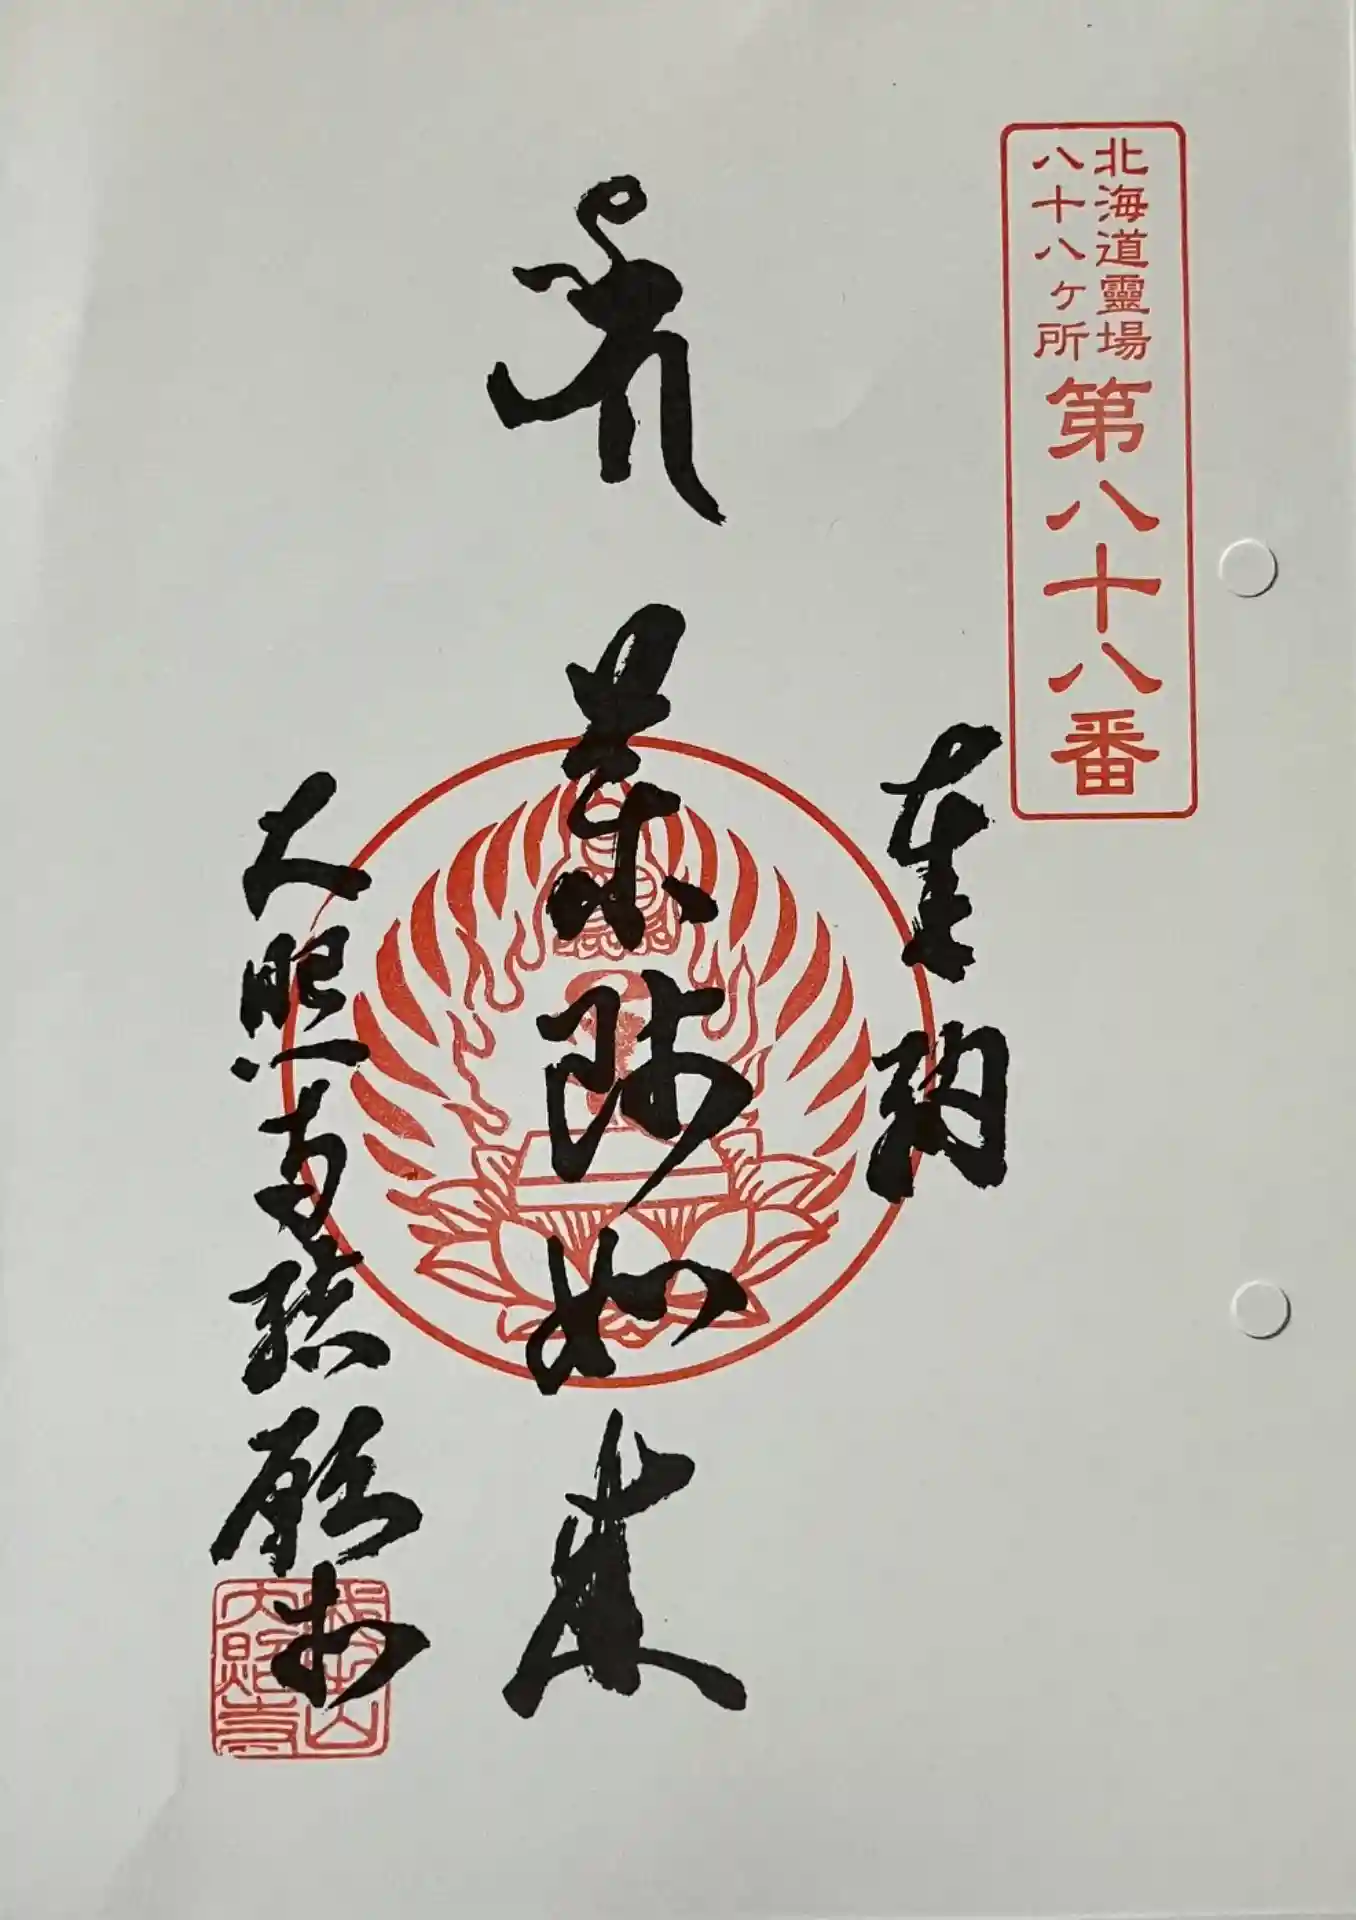 北海道靈場
八十八ヶ所
第八十八番
奉納
薬師如来
大照寺
大照寺